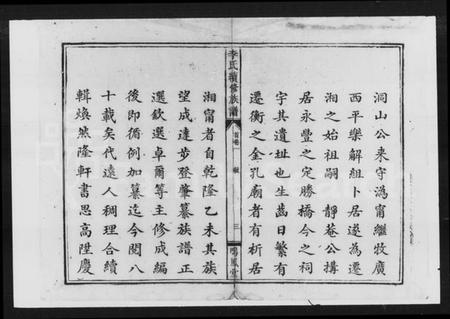 洞山公来守溈甯繼牧廣
西平樂解組卜居遂為遷
湘之始祖嗣 靜菴公搆
居永豐之定勝橋今之祠
宇其遺址也生齒日繁有
遷衡之金孔廟者有析居
李氏續修族譜
首卷
三
鳴鳳堂
湘甯者自乾隆乙未其族
望成達步登肇纂族譜正
選欽選卓爾等主修成編
後即循例加纂迄今閱八
十載矣代遠人稠理合續
輯煥然隆軒書思高陞慶